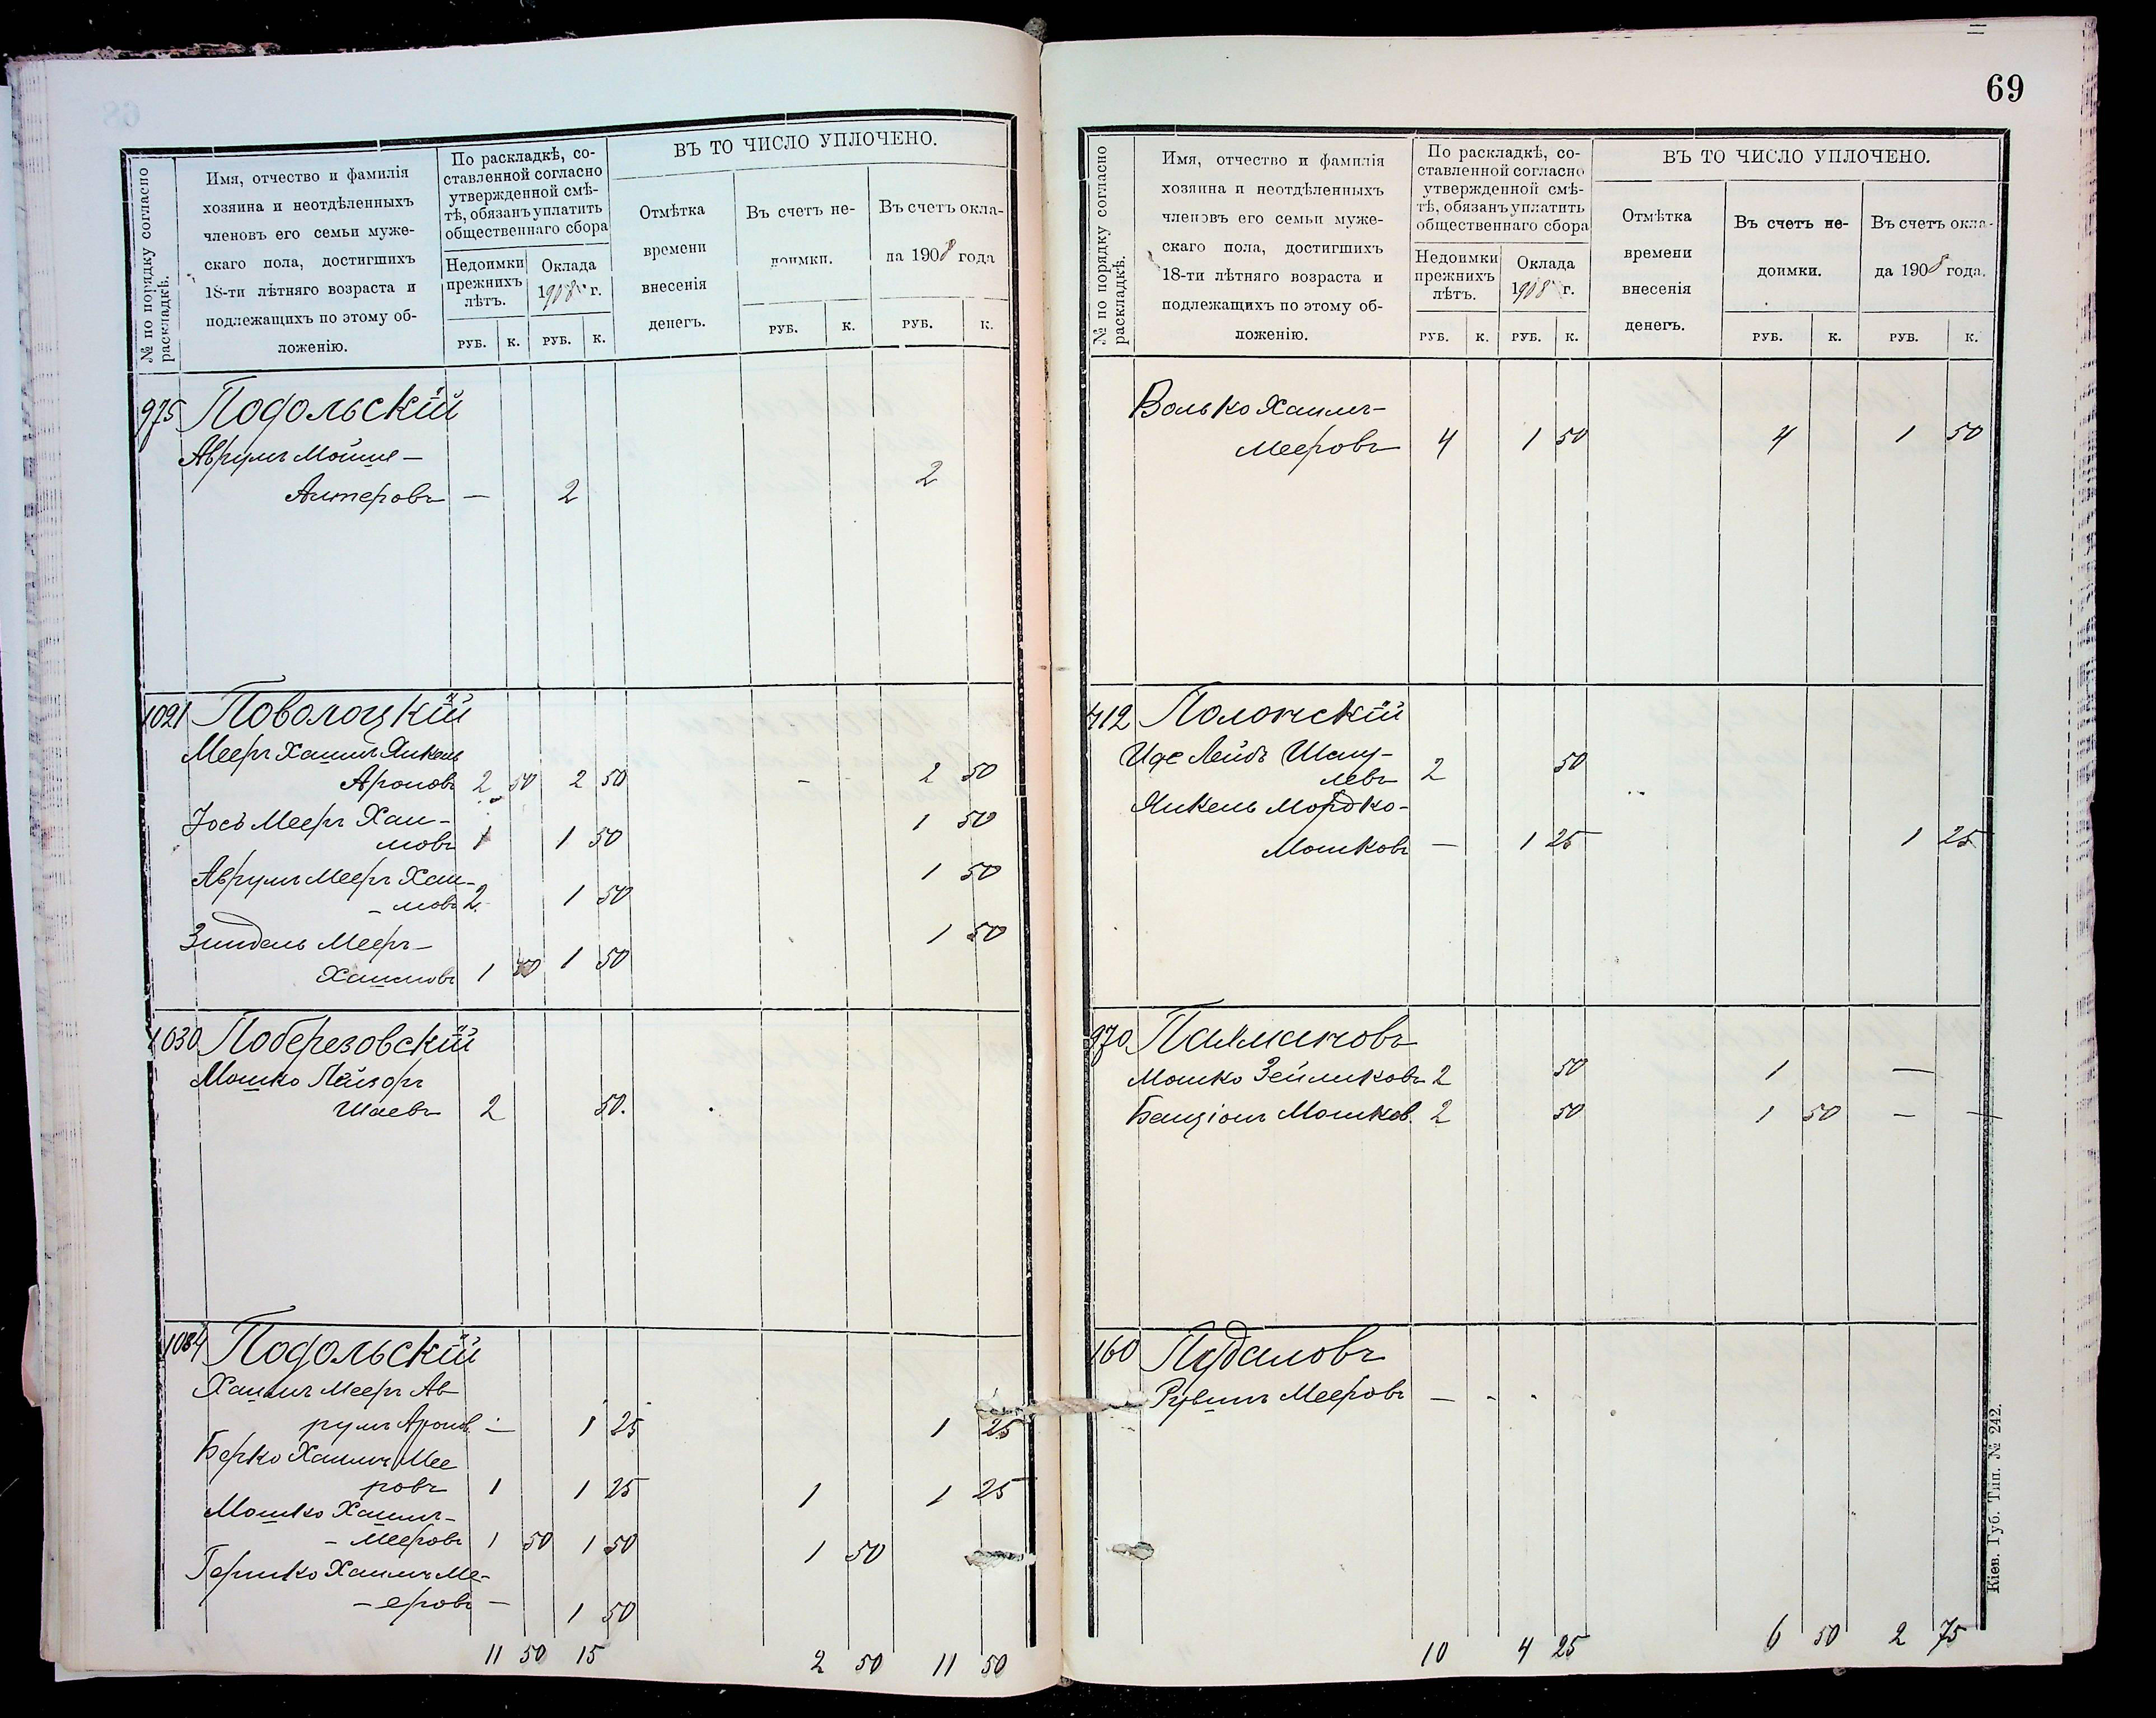 ВЪ ТО ЧИСЛО УПЛОЧЕНО.
№ по порядку согласно раскладкѣ.
Имя, отчество и фамилія
хозяина и неотдѣленныхъ
членовъ его семьи муже-
скаго пола, достигшихъ
18-ти лѣтняго возраста и
подлежащихъ по этому об-
ложенію.
По раскладкѣ, со-
ставленной согласно
утвержденной смѣ-
тѣ, обязанъ уплатить
общественнаго сбора
Недоимки
прежнихъ
лѣтъ.
Оклада
1908 г.
Отмѣтка
времени
внесенія
денегъ.
Въ счетъ не-
доимки.
Въ счетъ окла-
да 1908 года
РУБ. К. РУБ. К. РУБ. К. РУБ. К.
975 Подольскій
Аврумъ Мойше-
Алтеровъ — 2 2
1021 Поволоцкій
Мееръ Хаимъ Янкель
Ароновъ 2 50 2 50 - 2 50
Іось Мееръ Хаи-
мовъ 1 1 50 1 50
Аврумъ Мееръ Хаи-
- мовъ 2 1 50 1 50
Зиндель Мееръ-
Хаимовъ 1 50 1 50 1 50
1030 Поберезовскій
Мошко Лейзоръ
Шаевъ 2 50.
1084 Подольскій
Хаимъ Мееръ Ав
румъ Аронов. — 1 25 1 25
Берко Хаимъ Мее
ровъ 1 1 25 1 1 25
Мошко Хаимъ-
- Мееровъ 1 50 1 50 1 50
Гершко Хаимъ Ме-
- еровъ — 1 50
11 50 15 2 50 11 50
69
ВЪ ТО ЧИСЛО УПЛОЧЕНО.
№ по порядку согласно раскладкѣ.
Имя, отчество и фамилія
хозяина и неотдѣленныхъ
членовъ его семьи муже-
скаго пола, достигшихъ
18-ти лѣтняго возраста и
подлежащихъ по этому об-
ложенію.
По раскладкѣ, со-
ставленной согласно
утвержденной смѣ-
тѣ, обязанъ уплатить
общественнаго сбора
Недоимки
прежнихъ
лѣтъ.
Оклада
1908 г.
Отмѣтка
времени
внесенія
денегъ.
Въ счетъ не-
доимки.
Въ счетъ окла-
да 1908 года.
РУБ. К. РУБ. К. РУБ. К. РУБ. К.
Волько Хаимъ-
Мееровъ 4 1 50 4 1 50
412 Полонскій
Иде Лейбъ Шму-
левъ 2 50
Янкель Мордко-
Мошковъ — 1 25 1 25
970
Мошко Зейликовъ 2 50 1 —
Бенціонъ Мошков. 2 50 1 50 — —
160 Пудаловъ
Рувинъ Мееровъ — - -
10 4 25 6 50 2 75
Кіев. Губ. Тип. № 242.